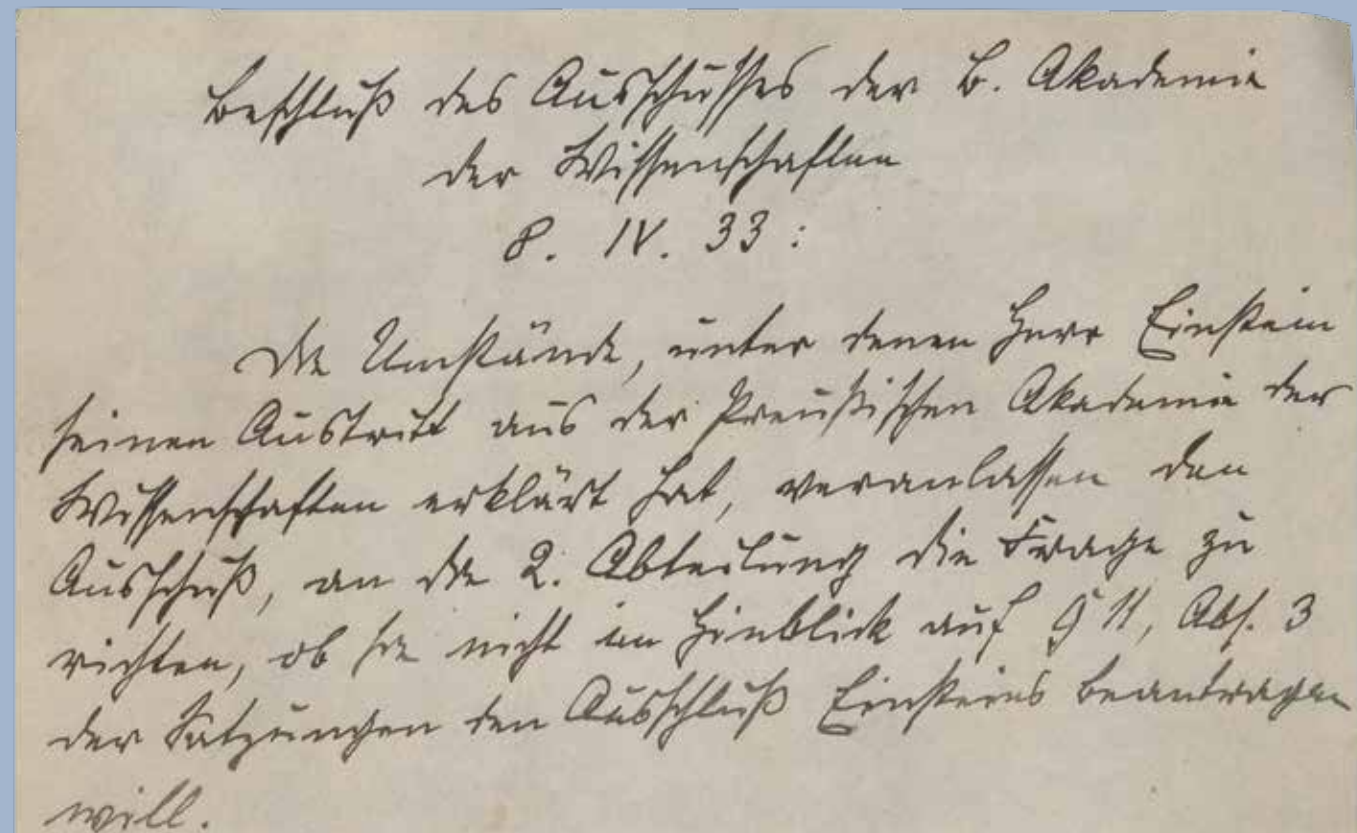 Beschluß des Ausschusses der B. Akademie
der Wissenschaften
8. IV. 33 :
Die Umstände, unter denen Herr Einstein
seinen Austritt aus der Preußischen Akademie der
Wissenschaften erklärt hat, veranlassen den
Ausschuß, an die 2. Abteilung die Frage zu
richten, ob sie nicht im Hinblick auf § 11, Abs. 3
der Satzungen den Ausschluß Einsteins beantragen
will.